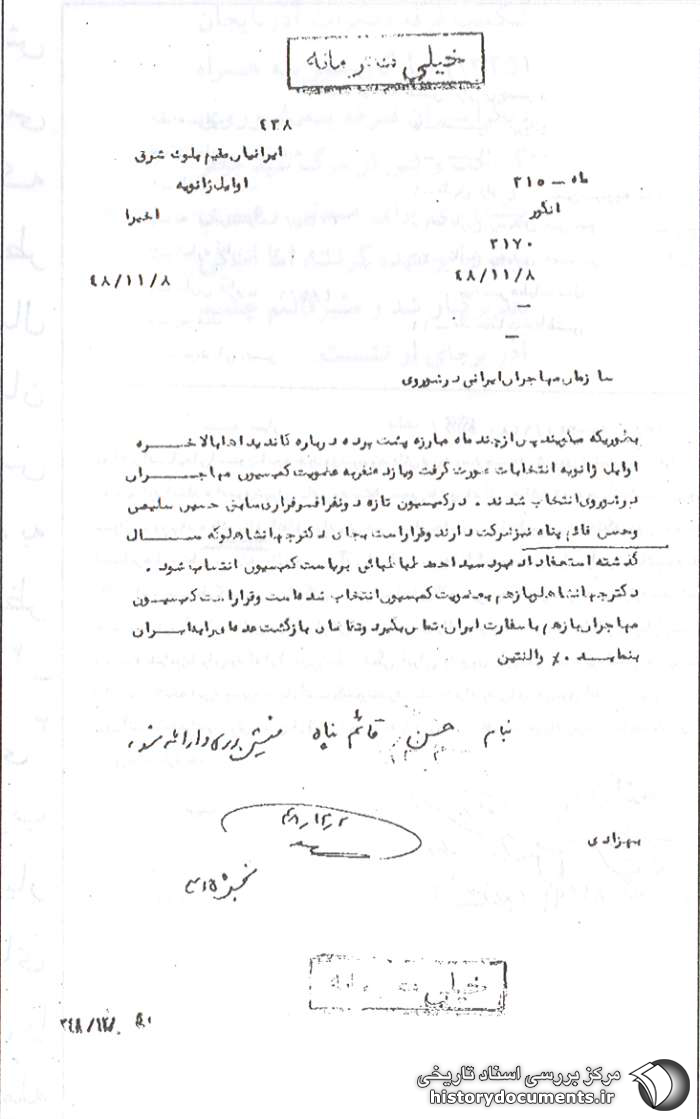 خیلی محرمانه
۴۳۸
ایرانیان مقیم بلوک شرق
ماه – ۳۱۵
اوایل ژانویه
انگور
اخیرا
۳۱۷۰
۴۸/۱۱/۸
۴۸/۱۱/۸
–
–
سازمان مهاجران ایرانی در شوروی
بطوریکه میگویند پس از چند ماه مبارزه پشت پرده درباره کاندیداها بالاخره
اوایل ژانویه انتخابات صورت گرفت و یازده نفر به عضویت کمیسیون مهاجران
در شوروی انتخاب شدند . در کمیسیون تازه دو نفر افسر فراری سابق حسین سلیمی
و حسن قائم پناه نیز شرکت دارند و قرار است بجای دکتر جهانشاهلو که سال
گذشته استعفا داده بود سید احمد طباطبائی بریاست کمیسیون انتخاب شود .
دکتر جهانشاهلو بازهم به عضویت کمیسیون انتخاب شده است و قرار است کمیسیون
مهاجران بازهم با سفارت ایران تماس بگیرد و تقاضای بازگشت عده‌ای را به ایران
بنماید ٪۰ والنتین
بنام حسن قائم پناه فیش برداری و ارائه شود
بهزادی
۳۱۵
خیلی محرمانه
مرکز بررسی اسناد تاریخی
historydocuments.ir